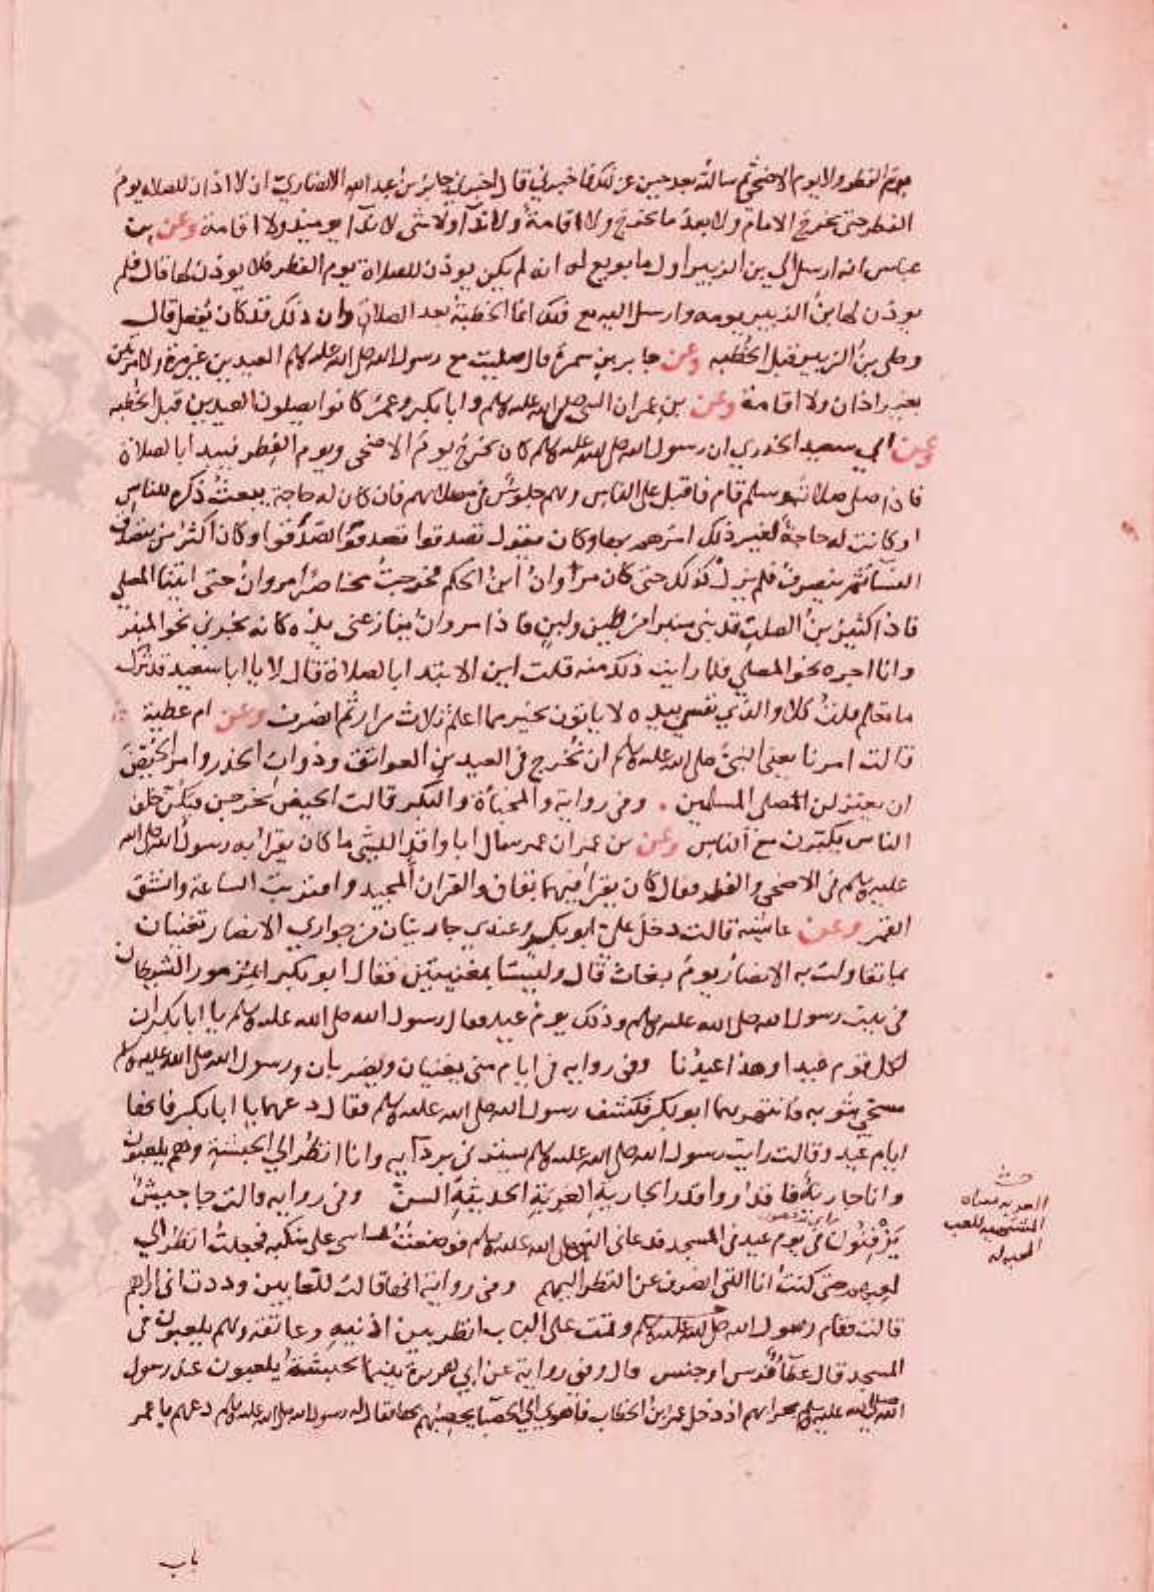 يوم الفطر ولا يوم الاضحى ثم سالته بعد حين عن ذلك فاخبرني قال اخبرني جابر بن عبد الله الانصاري ان لا اذان للصلاه يوم
الفطر حتى يخرج الامام ولا بعد ما يخرج ولا اقامة ولا ندآ ولا شى لا ندآ يوميذ ولا اقامة وعن بن
عباس انه ارسل الي بن الزبير اول ما بويع له انه لم يكن يوذن للصلاة يوم الفطر فلا يوذن لها قال فلم
يوذن لها بن الزبير يومه وارسل اليه مع ذلك انما الخطبة بعد الصلاة وان ذلك قد كان يفعل قال
وصلى بن الزبير قبل الخطبه وعن جابر بن سمرة قال صليت مع رسول الله صلى الله عليه وسلم العيدين غير مرة ولا مرتين
بغير اذان ولا اقامة وعن بن عمر ان النبى صلى الله عليه وسلم وابا بكر وعمر كانوا يصلون العيدين قبل الخطبه
وعن ابي سعيد الخدري ان رسول الله صلى الله عليه وسلم كان يخرج يوم الاضحى ويوم الفطر فيبدا بالصلاة
فاذا صلى صلاته وسلم قام فاقبل على الناس وهم جلوس في مصلاهم فان كان له حاجة ببعث ذكره للناس
او كانت له حاجة لغير ذلك امرهم بها وكان يقول تصدقوا تصدقوا تصدقوا وكان اكثر من يتصدق
النسآ ثم ينصرف فلم يزل كذلك حتى كان مروان ابن الحكم فخرجت مخاصرا مروان حتى اتينا المصلي
فاذا كثير بن الصلت قد بنى منبرا من طين ولبن فاذا مروان ينازعنى يده كانه يجرني نحو المنبر
وانا اجره نحو المصلي فلما رايت ذلك منه قلت اين الابتدا بالصلاة قال لا يا ابا سعيد قد ترك
ما تعلم قلت كلا والذي نفسي بيده لا ياتون بخير مما اعلم ثلاث مرار ثم انصرف وعن ام عطية
قالت امرنا يعنى النبى صلى الله عليه وسلم ان نخرج في العيدين العواتق وذوات الخدور وامر الحيض
ان يعتزلن مصلى المسلمين . وفى رواية والمخبأة والبكر قالت الحيض يخرجن فيكن خلف
الناس يكبرن مع الناس وعن بن عمر ان عمر سال ابا واقد الليثى ما كان يقرا به رسول الله صلى الله
عليه وسلم في الاضحى والفطر فقال كان يقرا فيهما بقاف والقران المجيد واقتربت الساعة وانشق
القمر وعن عائشة قالت دخل علي ابو بكر وعندي جاريتان من جواري الانصار تغنيان
بما تقاولت به الانصار يوم بعاث قال وليستا بمغنيتين فقال ابو بكر ابمزمور الشيطان
في بيت رسول الله صلى الله عليه وسلم وذلك يوم عيد فقال رسول الله صلى الله عليه وسلم يا ابا بكر ان
لكل قوم عيدا وهذا عيدنا وفى روايه في ايام منى يغنيان ويضربان ورسول الله صلى الله عليه وسلم
مسجى بثوبه فانتهرهما ابو بكر فكشف رسول الله صلى الله عليه وسلم فقال دعهما يا ابا بكر فانها
ايام عيد وقالت رايت رسول الله صلى الله عليه وسلم يسترنى بردآيه وانا انظر الي الحبشة وهم يلعبون
وانا جارية فاقدروا قدر الجارية العربة الحديثة السن وفى روايه قالت جا حبيش
يزفنون في يوم عيد في المسجد فدعانى النبى صلى الله عليه وسلم فوضعت راسى على منكبه فجعلت انظر الي
لعبهم حتى كنت انا التى انصرف عن النظر اليهم وفى رواية انها قالت للعابين وددت انى اراهم
قالت فقام رسول الله صلى الله عليه وسلم وقمت على الباب انظر بين اذنيه وعاتقه وهم يلعبون في
المسجد قال عطآ فرس او حبش قال وفى رواية عن ابي هريرة بينما الحبشة يلعبون عند رسول
الله صلى الله عليه وسلم بحرابهم اذ دخل عمر ابن الخطاب فاهوي الي الحصبا يحصبهم بها فقال له رسول الله صلى الله عليه وسلم دعهم يا عمر
العربه معناه
المشتهيه للعب
المحبه له
باب